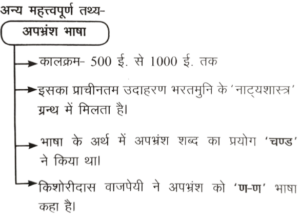 अन्य महत्त्वपूर्ण तथ्य-
अपभ्रंश भाषा
कालक्रम- 500 ई. से 1000 ई. तक
इसका प्राचीनतम उदाहरण भरतमुनि के 'नाट्यशास्त्र'
ग्रन्थ में मिलता है।
भाषा के अर्थ में अपभ्रंश शब्द का प्रयोग 'चण्ड'
ने किया था।
किशोरीदास वाजपेयी ने अपभ्रंश को 'ण-ण' भाषा
कहा है।